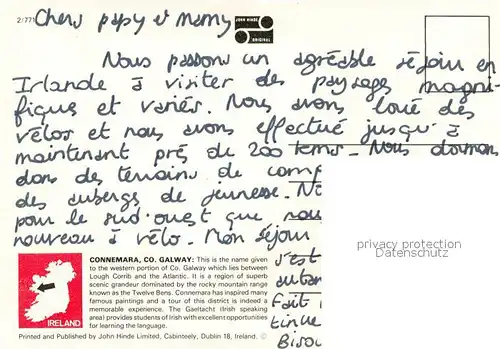 2/771
Chers papy et mamy
JOHN HINDE
ORIGINAL
Nous passons un agréable séjour en
Irlande à visiter des paysages magni-
fiques et variés. Nous avons loué des
vélos et nous avons effectué jusqu'à
maintenant prés de 200 kms. Nous dormons
dans des terrains de comp
des auberges de jeunesse. No
pour le sud-ouest que nou
nouveau à vélo. Mon séjour
s'est
autan
fait
tinue
Bisou
privacy protection
Datenschutz
CONNEMARA, CO. GALWAY: This is the name given
to the western portion of Co. Galway which lies between
Lough Corrib and the Atlantic. It is a region of superb
scenic grandeur dominated by the rocky mountain range
known as the Twelve Bens. Connemara has inspired many
famous paintings and a tour of this district is indeed a
memorable experience. The Gaeltacht (Irish speaking
area) provides students of Irish with excellent opportunities
for learning the language.
IRELAND
Printed and Published by John Hinde Limited, Cabinteely, Dublin 18, Ireland. ©